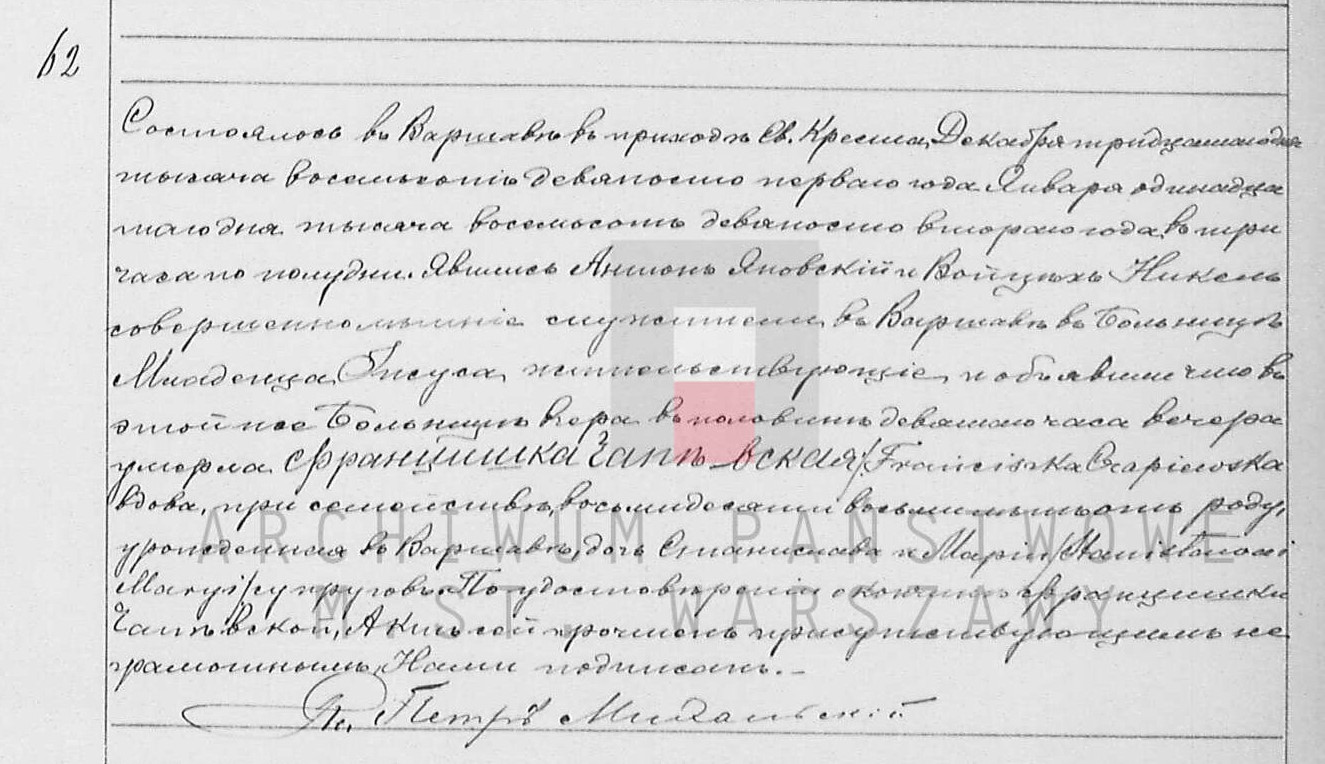 62
Состоялось въ Варшавѣ въ приходѣ Св. Креста, Декабря тридцатаго дня
тысяча восемьсотъ девяносто перваго года Января одинадца
таго дня тысяча восемьсотъ девяносто втораго года, въ три
часа по полудни. Явились Антонъ Яновскій и Войцѣхъ Никель
совершеннолѣтніе служители въ Варшавѣ въ Больницѣ
Младенца Іисуса жительствующіе, и объявили что въ
этой же Больницѣ вчера въ половинѣ девятаго часа вечера
умерла Францишка Чапѣвская /Franciszka Czapiewska
вдова, при семействѣ, восьмидесяти восьми лѣтъ отъ роду,
урожденная въ Варшавѣ, дочь Станислава и Маріи /Stanisława i
Maryi/ супруговъ. По удостовѣреніи о кончинѣ Францишки
Чапѣвской, Актъ сей прочтенъ присутствующимъ не
грамотнымъ, Нами подписанъ. —
Кс. Петръ Михальскій
ARCHIWUM PAŃSTWOWE
M. ST. WARSZAWY